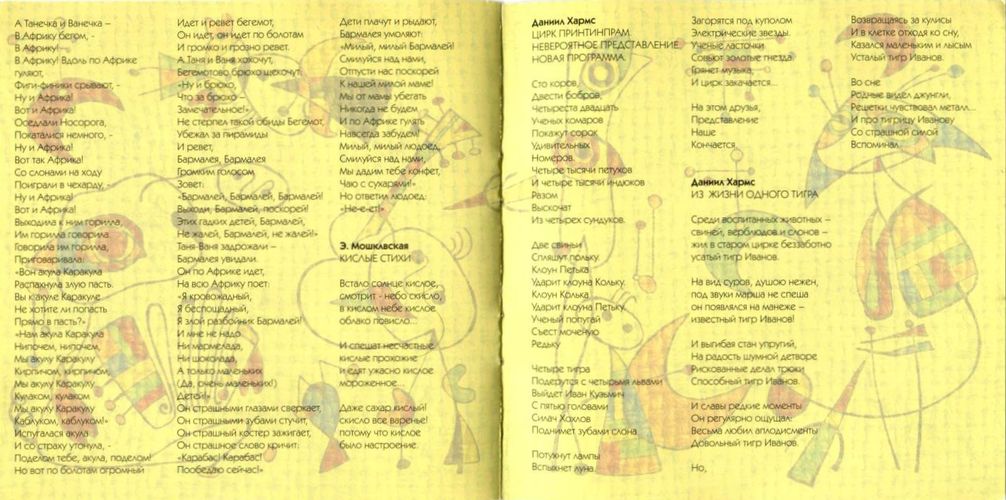 А Танечка и Ванечка –
В Африку бегом, -
В Африку!
В Африку! Вдоль по Африке
гуляют,
Фиги-финики срывают, -
Ну и Африка!
Вот и Африка!
Оседлали Носорога,
Покатались немного, -
Ну и Африка!
Вот так Африка!
Со слонами на ходу
Поиграли в чехарду, -
Ну и Африка!
Вот и Африка!
Выходила к ним горилла,
Им горилла говорила.
Говорила им горилла,
Приговаривала:
«Вон акула Каракула
Распахнула злую пасть.
Вы к акуле Каракуле
Не хотите ли попасть
Прямо в пасть?»
«Нам акула Каракула
Нипочем, нипочем,
Мы акулу Каракулу
Кирпичом, кирпичом,
Мы акулу Каракулу
Кулаком, кулаком
Мы акулу Каракулу
Каблуком, каблуком!»
Испугалася акула
И со страху утонула, -
Поделом тебе, акула, поделом!
Но вот по болотам огромный
Идет и ревет бегемот,
Он идет, он идет по болотам
И громко и грозно ревет.
А Таня и Ваня хохочут,
Бегемотово брюхо щекочут:
«Ну и брюхо,
Что за брюхо –
Замечательное!»
Не стерпел такой обиды Бегемот,
Убежал за пирамиды
И ревет,
Бармалея, Бармалея
Громким голосом
Зовет:
«Бармалей, Бармалей, Бармалей!
Выходи, Бармалей, поскорей!
Этих гадких детей, Бармалей,
Не жалей, Бармалей, не жалей!»
Таня-Ваня задрожали –
Бармалея увидали.
Он по Африке идет,
На всю Африку поет:
«Я кровожадный,
Я беспощадный,
Я злой разбойник Бармалей!
И мне не надо
Ни мармелада,
Ни шоколада,
А только маленьких
(Да, очень маленьких!)
Детей!»
Он страшными глазами сверкает,
Он страшными зубами стучит,
Он страшный костер зажигает,
Он страшное слово кричит:
«Карабас! Карабас!
Пообедаю сейчас!»
Дети плачут и рыдают,
Бармалея умоляют:
«Милый, милый Бармалей!
Смилуйся над нами,
Отпусти нас поскорей
К нашей милой маме!
Мы от мамы убегать
Никогда не будем
И по Африке гулять
Навсегда забудем!
Милый, милый людоед,
Смилуйся над нами,
Мы дадим тебе конфет,
Чаю с сухарями!»
Но ответил людоед:
«Не-е-ет!»
Э. Мошклвская
КИСЛЫЕ СТИХИ
Встало солнце кислое,
смотрит - небо скисло,
в кислом небе кислое
облако повисло...
И спешат несчастные
кислые прохожие
и едят ужасно кислое
мороженное...
Даже сахар кислый!
скисло все варенье!
потому что кислое
было настроение.
Даниил Хармс
ЦИРК ПРИНТИНПРАМ
НЕВЕРОЯТНОЕ ПРЕДСТАВЛЕНИЕ.
НОВАЯ ПРОГРАММА.
Сто коров,
Двести бобров,
Четыреста двадцать
Ученых комаров
Покажут сорок
Удивительных
Номеров.
Четыре тысячи петухов
И четыре тысячи индюков
Разом
Выскочат
Из четырех сундуков.
Две свиньи
Спляшут польку.
Клоун Петька
Ударит клоуна Кольку.
Клоун Колька
Ударит клоуна Петьку.
Ученый попугай
Съест моченую
Редьку
Четыре тигра
Подерутся с четырьмя львами
Выйдет Иван Кузьмич
С пятью головами
Силач Хохлов
Поднимет зубами слона.
Потухнут лампы
Вспыхнет луна.
Загорятся под куполом
Электрические звезды.
Ученые ласточки
Совьют золотые гнезда.
Грянет музыка,
И цирк закачается...
На этом друзья,
Представление
Наше
Кончается.
Даниил Хармс
ИЗ ЖИЗНИ ОДНОГО ТИГРА
Среди воспитанных животных –
свиней, верблюдов и слонов –
жил в старом цирке беззаботно
усатый тигр Иванов.
На вид суров, душою нежен,
под звуки марша не спеша
он появлялся на манеже –
известный тигр Иванов!
И выгибая стан упругий,
На радость шумной детворе
Рискованные делал трюки
Способный тигр Иванов.
И славы редкие моменты
Он регулярно ощущал:
Весьма любил аплодисменты
Довольный тигр Иванов.
Но,
Возвращаясь за кулисы
И в клетке отходя ко сну,
Казался маленьким и лысым
Усталый тигр Иванов.
Во сне
Родные видел джунгли,
Решетки чувствовал металл...
И про тигрицу Иванову
Со страшной силой
Вспоминал.